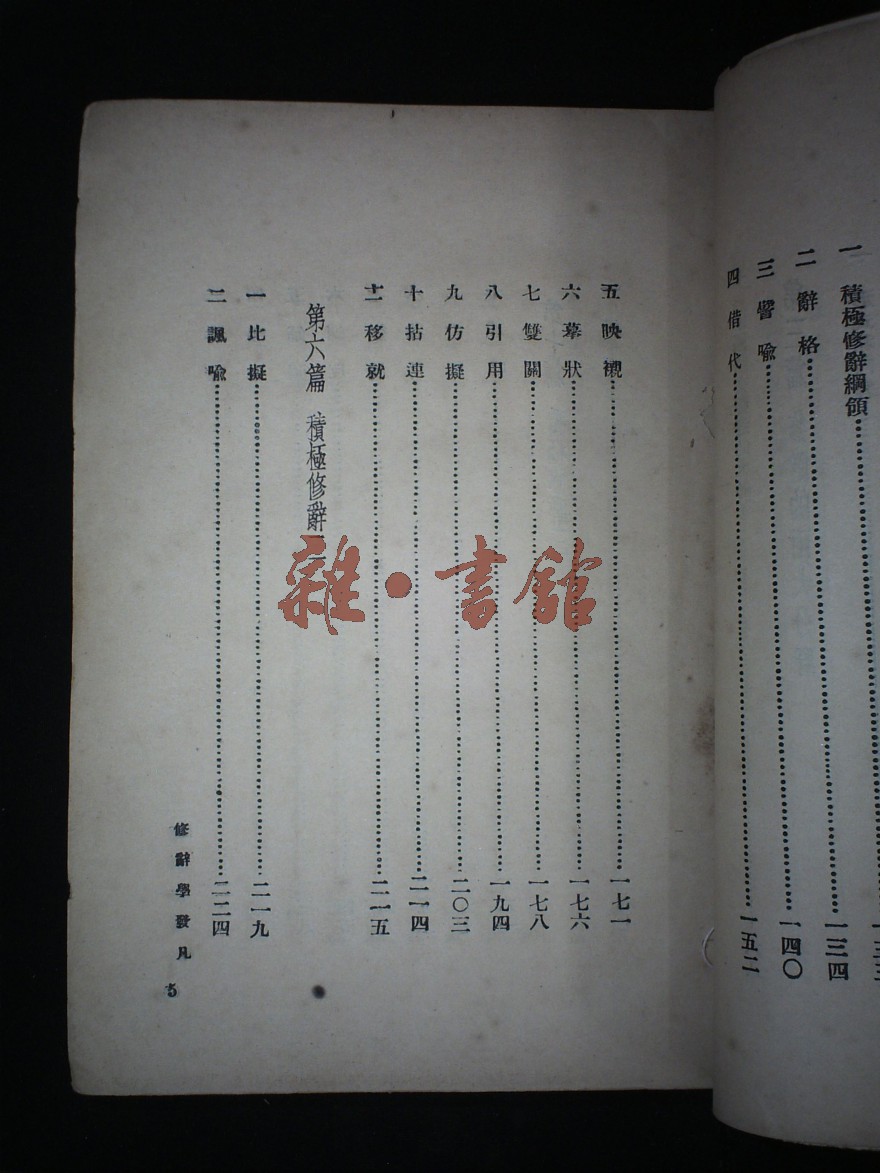 一 積極修辭綱領
二 辭格……一三四
三 譬喩……一四〇
四 借代……一五二
五 映襯……一七一
六 摹狀……一七六
七 雙關……一七八
八 引用……一九四
九 仿擬……二〇三
十 拈連……二一四
十一 移就……二一五
第六篇 積極修辭二
一 比擬……二一九
二 諷喩……二二四
修辭學發凡
5
雜·書館